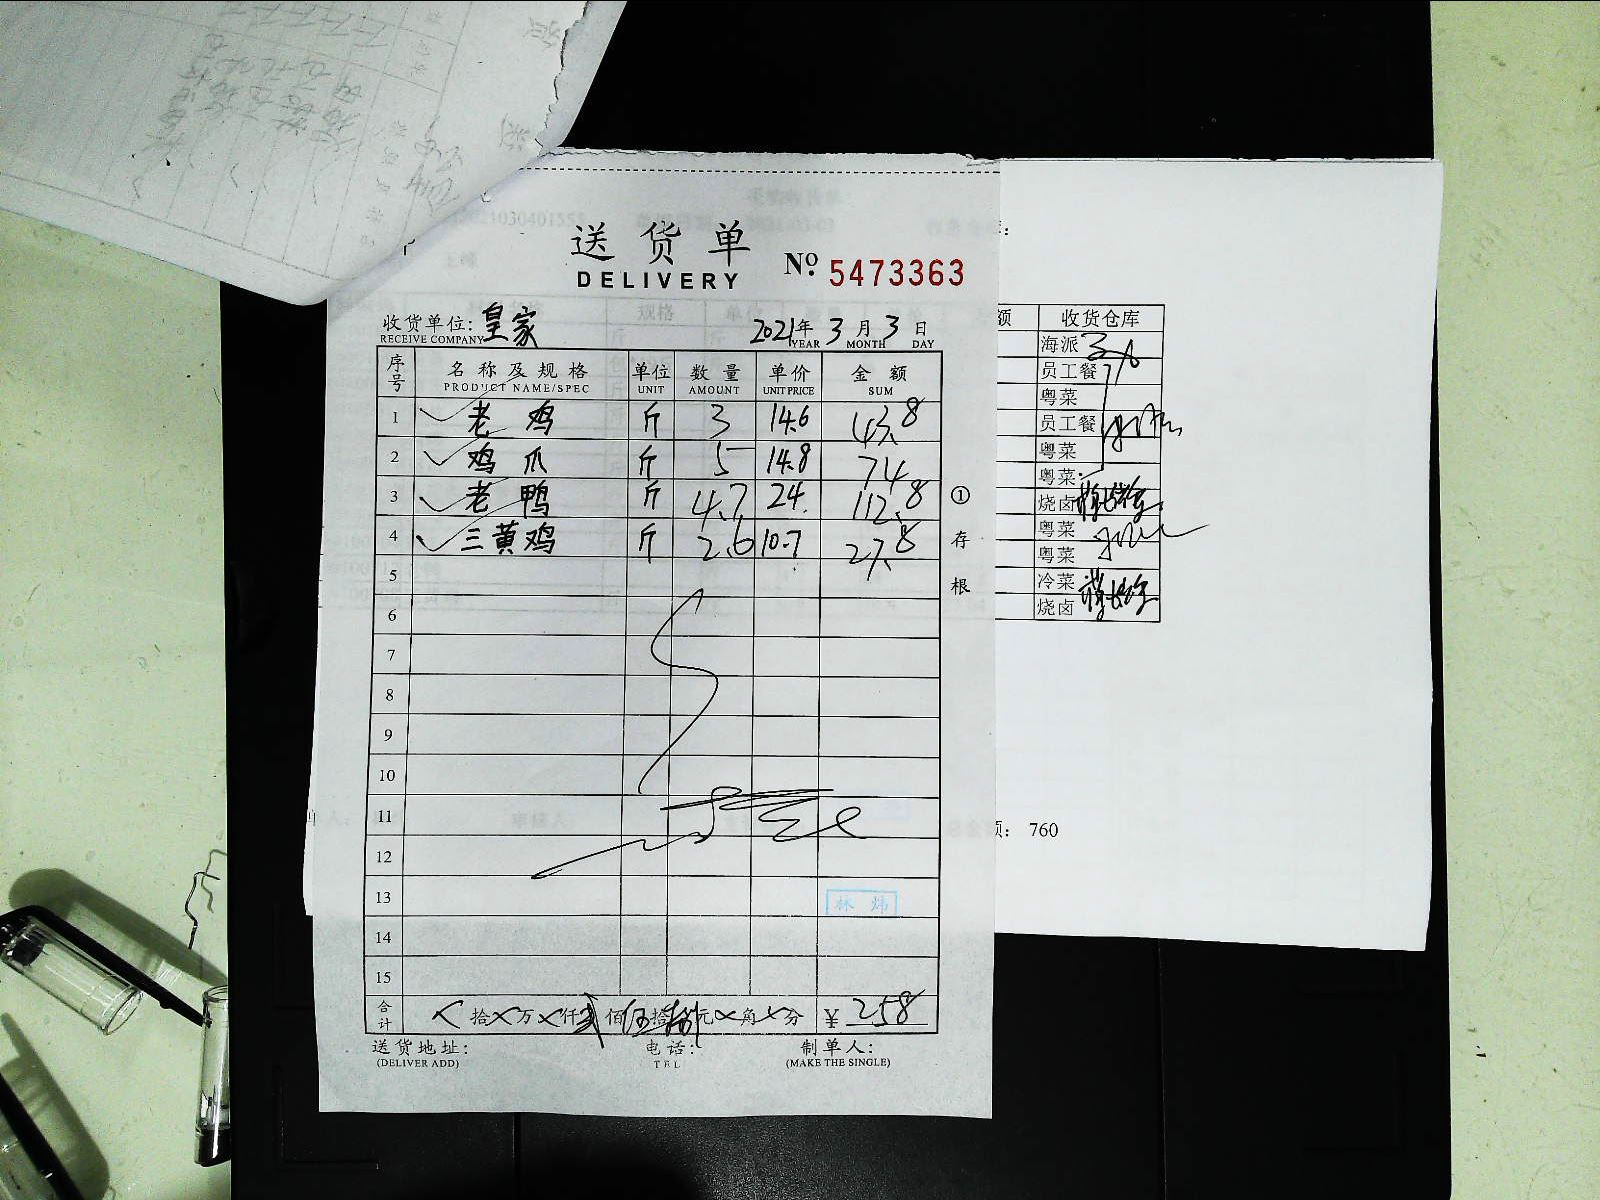 送货单
DELIVERY
№ 5473363
收货单位: 皇家
RECEIVE COMPANY
2021年 3月 3日
YEAR MONTH DAY
序号 名称及规格 单位 数量 单价 金额
PRODUCT NAME/SPEC UNIT AMOUNT UNIT PRICE SUM
1 老鸡 斤 3 14.6 43.8
2 鸡爪 斤 5 14.8 74
3 老鸭 斤 4.7 24 112.8
4 三黄鸡 斤 2.6 10.7 27.8
5
6
7
8
9
10
11
12
13 林炜
14
15
合计 拾 万 仟 贰佰 伍拾 捌元 角 分 ¥ 258
送货地址: 电话: 制单人:
(DELIVER ADD) TEL (MAKE THE SINGLE)
① 存根
额 收货仓库
海派
员工餐
粤菜
员工餐
粤菜
粤菜
烧卤
粤菜
粤菜
冷菜
烧卤
: 760